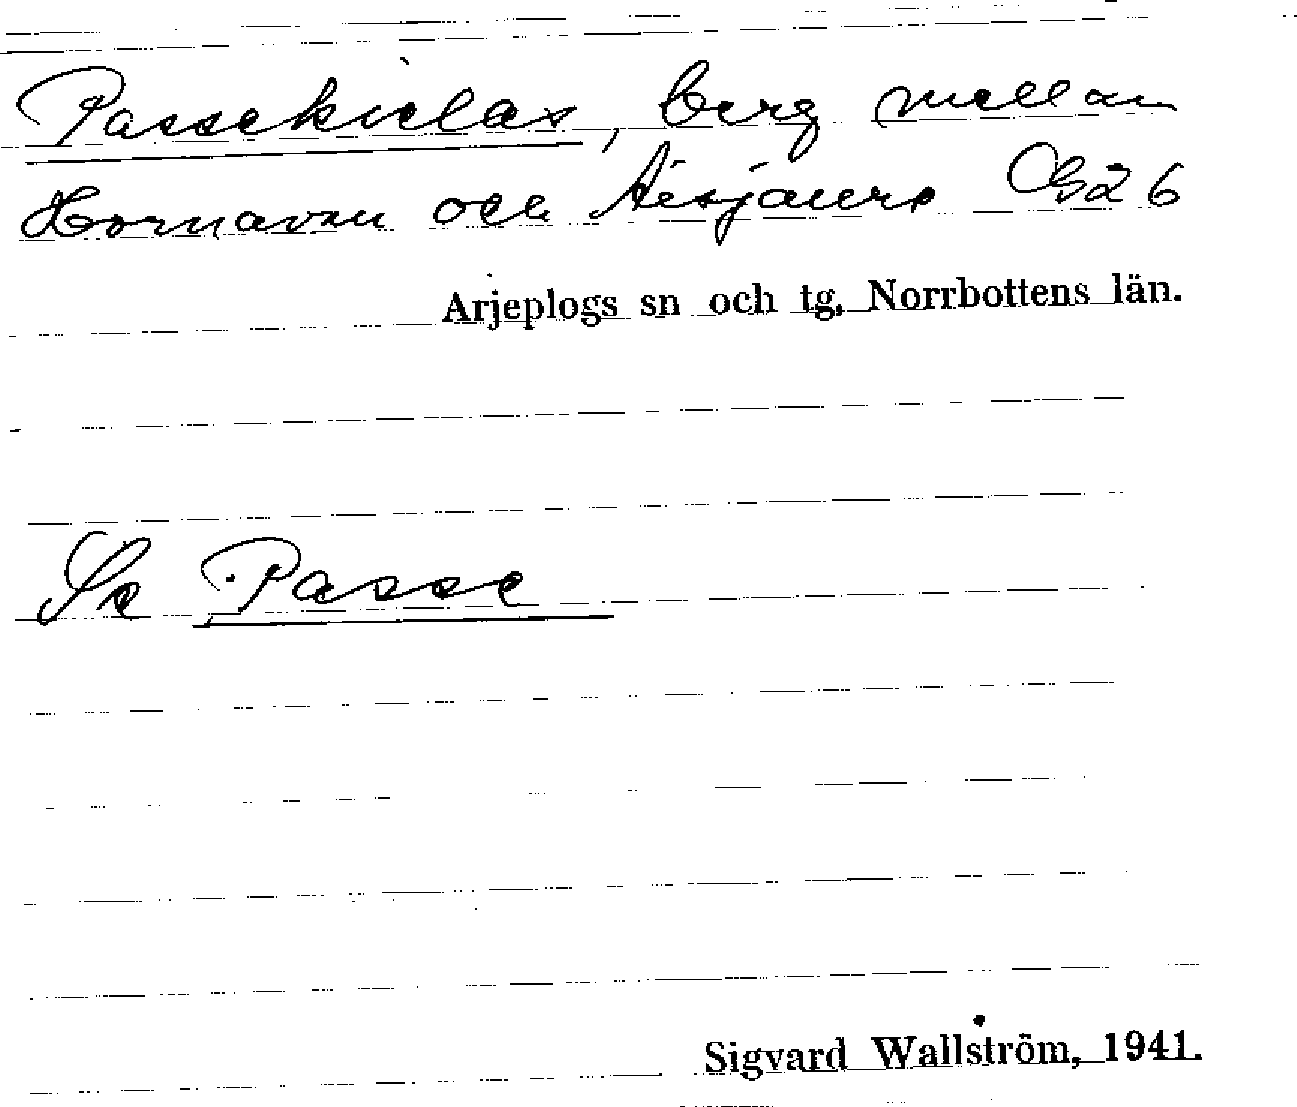 Passekielas, berg mellan
Hornavan och Aisjaure OG26
Arjeplogs sn och tg, Norrbottens län.
Se Passe
Sigvard Wallström, 1941.